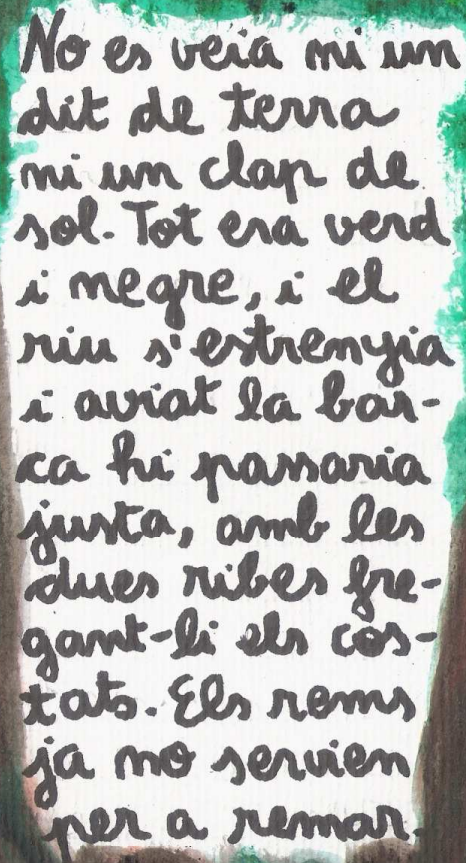 No es veia ni un
dit de terra
ni un clap de
sol. Tot era verd
i negre, i el
riu s'estrenyia
i aviat la bar-
ca hi passaria
justa, amb les
dues ribes fre-
gant-li els cos-
tats. Els rems
ja no servien
per a remar.